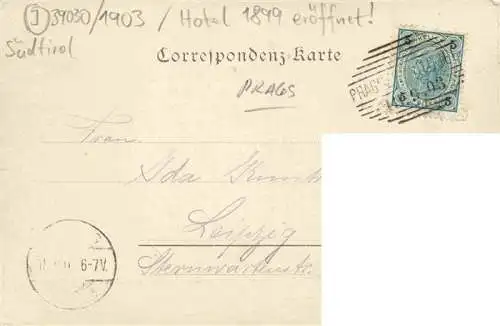 (I) 39030/1903 / Hotel 1899 eröffnet!
Südtirol
Correspondenz-Karte
PRAGS
PRAGS
5 5
Frau
Ida
Leipzig
Sternwartenstr.
6-7V.